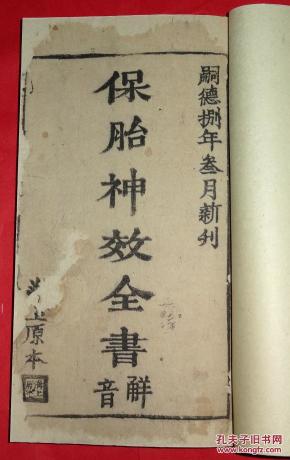 嗣德捌年叁月新刋
保胎神效全書
解音
上原本
孔夫子旧书网